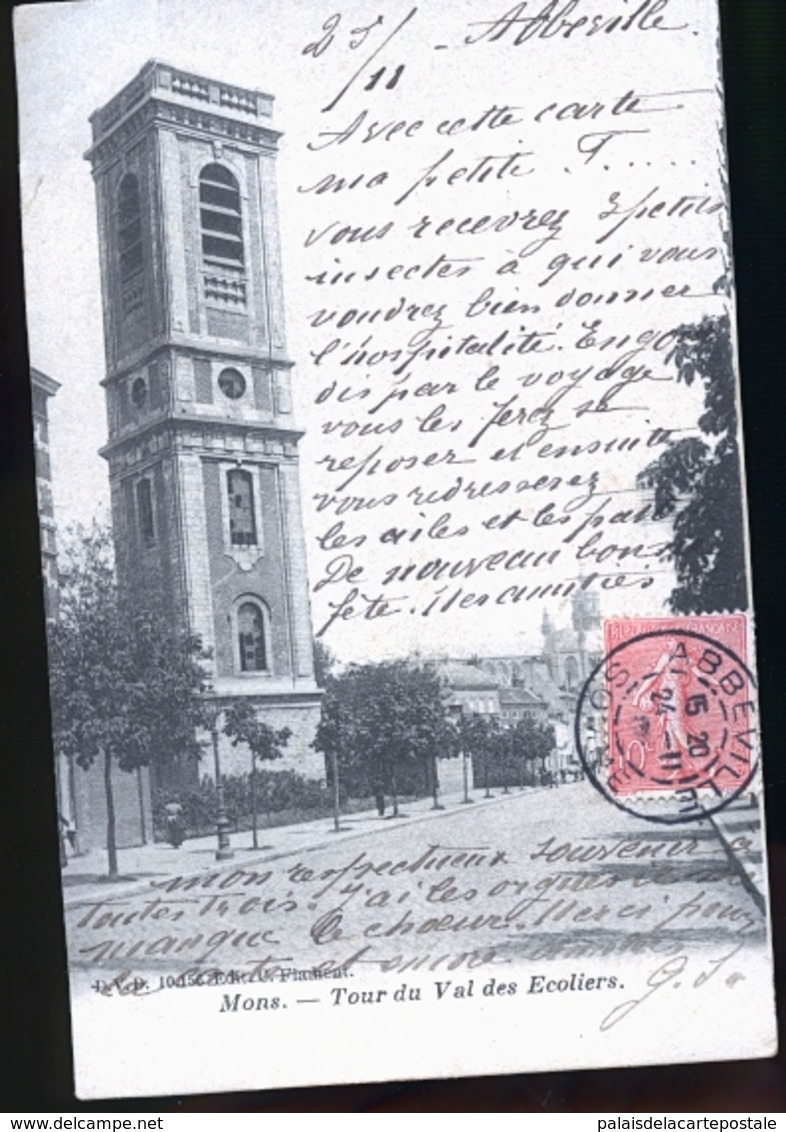 25/11 - Abbeville.
Avec cette carte
ma petite T.....
vous recevrez 3 petits
insectes à qui vous
voudrez bien donner
l'hospitalité. Engour
dis par le voyage
vous les ferez se
reposer et ensuite
vous redresserez
les ailes et les pattes
De nouveau bonne
fête. Mes amitiés
RÉPUBLIQUE FRANÇAISE
10c
ABBEVILLE
SOMME
15 20
24-11
mon respectueux souvenir à
toutes trois. J'ai les orgues
manque le choeur. Merci pour
la carte et encore
J. S.
D.V.D. 10456 Edit. C. Flament.
Mons. — Tour du Val des Ecoliers.
www.delcampe.net
palaisdelacartepostale